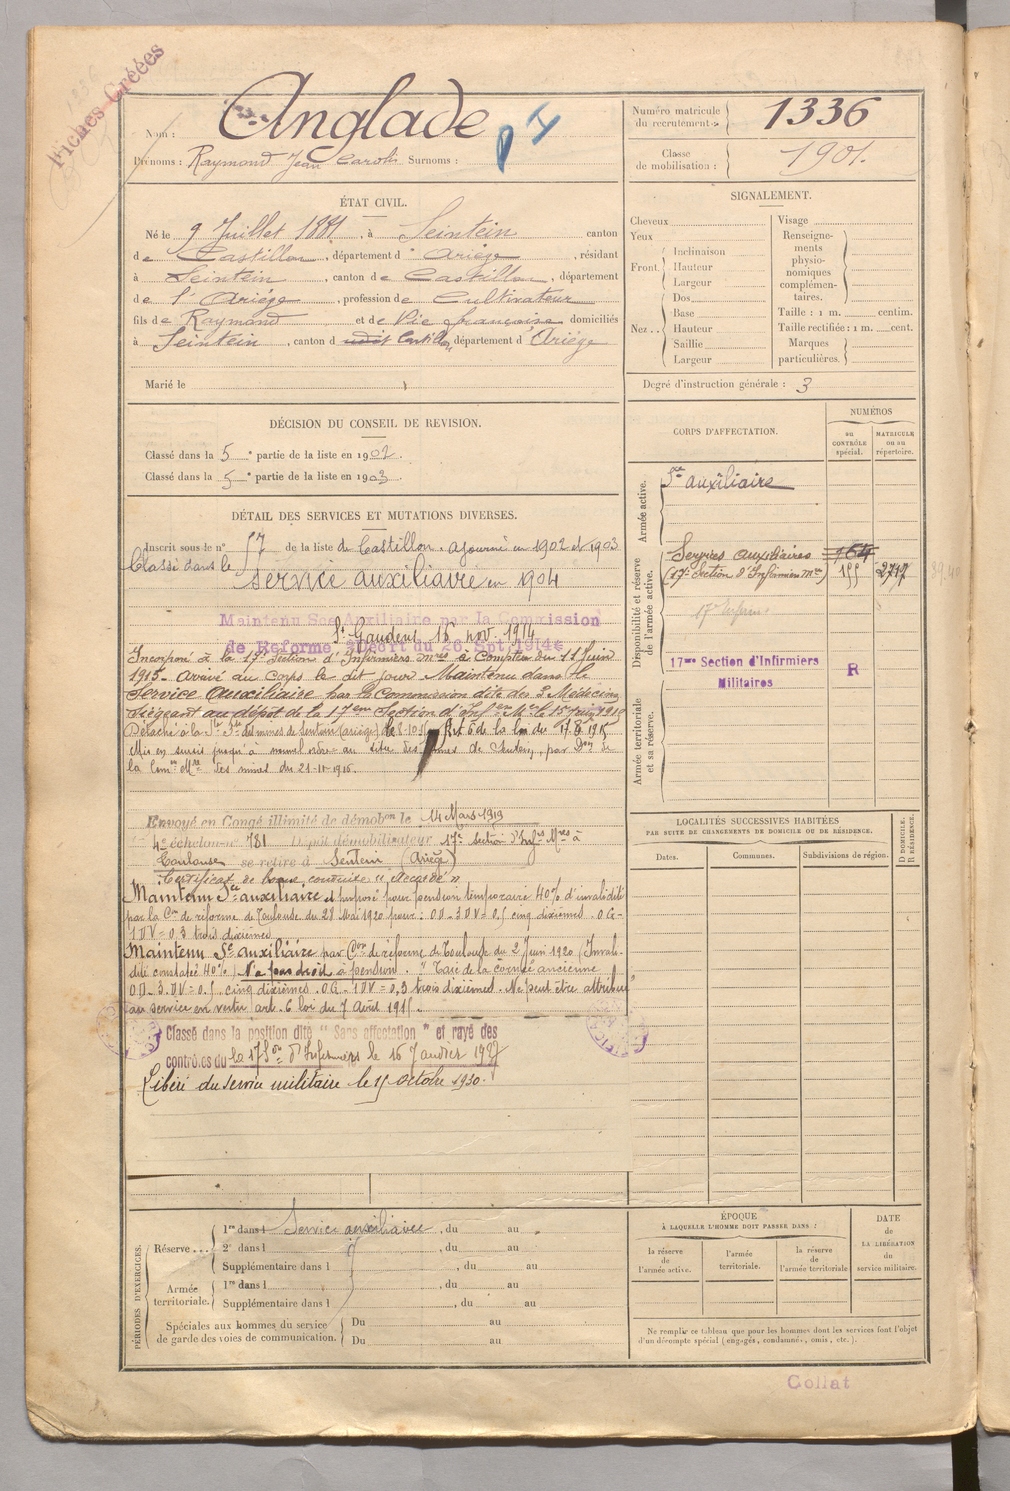 Fiches Créées
Nom : Anglade
Prénoms : Raymond Jean Surnoms :
Numéro matricule du recrutement : 1336
Classe de mobilisation : 1901.
ÉTAT CIVIL.
Né le 9 Juillet 1881, à Seintein canton
de Castillon, département d' Ariège, résidant
à Seintein, canton de Castillon, département
de l'Ariège, profession de Cultivateur
fils de Raymond et de Vic françoise domiciliés
à Seintein, canton d Castillon, département d'Ariège
Marié le
SIGNALEMENT.
Cheveux
Yeux
Front. Inclinaison
Hauteur
Largeur
Dos
Nez .. Base
Hauteur
Saillie
Largeur
Visage
Renseignements physionomiques complémentaires.
Taille : 1 m. centim.
Taille rectifiée : 1 m. cent.
Marques particulières.
Degré d'instruction générale : 3
DÉCISION DU CONSEIL DE REVISION.
Classé dans la 5e partie de la liste en 1902.
Classé dans la 5e partie de la liste en 1903.
CORPS D'AFFECTATION.
NUMÉROS
au CONTRÔLE spécial.
MATRICULE ou au répertoire.
Armée active.
Sce auxiliaire
Disponibilité et réserve de l'armée active.
Services auxiliaires
(17e Section d'Infirmiers Mres) 155 2717
17me Section d'Infirmiers R
Militaires
Armée territoriale et sa réserve.
DÉTAIL DES SERVICES ET MUTATIONS DIVERSES.
Inscrit sous le n° 57 de la liste de Castillon. Ajourné en 1902 et 1903
Classé dans le
service auxiliaire en 1904
Maintenu Sce Auxiliaire par la Commission
St Gaudens 16 nov. 1914
de Réforme Décret du 26 Spt. 1914
Incorporé à la 17e Section d'Infirmiers Mres à Compter du 11 Juin
1915. Arrivé au Corps le dit jour. Maintenu dans le
Service Auxiliaire par la Commission dite des 3 Médecins
Siégeant au dépôt de la 17eme Section d'Infers Mres le 15 Juin 1915
Détaché à la Ste des mines de Sentein (Ariège) le 8-10-15 Art 6 de la loi du 17.8.1915
Mis en sursis jusqu'à nouvel ordre au titre des mines de Sentein, par Don de
la Comon Mre des mines du 21-11-1916.
Envoyé en Congé illimité de démobon le 14 Mars 1919
4e échelon n° 781 Dépôt démobilisateur 17e section d'Infrs Mres à
Toulouse se retire à Sentein (Ariège)
Certificat de bonne conduite « Accordé »
Maintenu Sce auxiliaire et proposé pour pension temporaire 40% d'invalidité
par la Con de réforme de Toulouse du 28 Mai 1920 pour : O.D - 3 DV = 0,5 cinq dixièmes. O.G -
1 DV = 0.3 trois dixièmes
Maintenu Sce auxiliaire par Con de réforme de Toulouse du 2 Juin 1920 (Invali-
dité constatée 40%) N'a pas droit à pension. " Taie de la cornée ancienne
O.D - 3. DV = 0.5 cinq dixièmes. O.G - 1 DV = 0,3 trois dixièmes. Ne peut être attribué
au service en vertu art. 6 loi du 7 Août 1915.
Classé dans la position dite " Sans affectation " et rayé des
contrôles du la 17 Son d'Infirmiers le 16 Janvier 1927
Libéré du service militaire le 15 octobre 1930.
LOCALITÉS SUCCESSIVES HABITÉES
PAR SUITE DE CHANGEMENTS DE DOMICILE OU DE RÉSIDENCE.
Dates. Communes. Subdivisions de région.
D DOMICILE. R RÉSIDENCE.
PÉRIODES D'EXERCICES.
Réserve .... 1re dans l Service auxiliaire, du au
2e dans l , du au
Supplémentaire dans l , du au
Armée territoriale. 1re dans l , du au
Supplémentaire dans l , du au
Spéciales aux hommes du service de garde des voies de communication. Du au
Du au
ÉPOQUE
À LAQUELLE L'HOMME DOIT PASSER DANS :
la réserve de l'armée active.
l'armée territoriale.
la réserve de l'armée territoriale
DATE de LA LIBÉRATION du service militaire.
Ne remplir ce tableau que pour les hommes dont les services font l'objet
d'un décompte spécial (engagés, condamnés, omis, etc.).
Collat